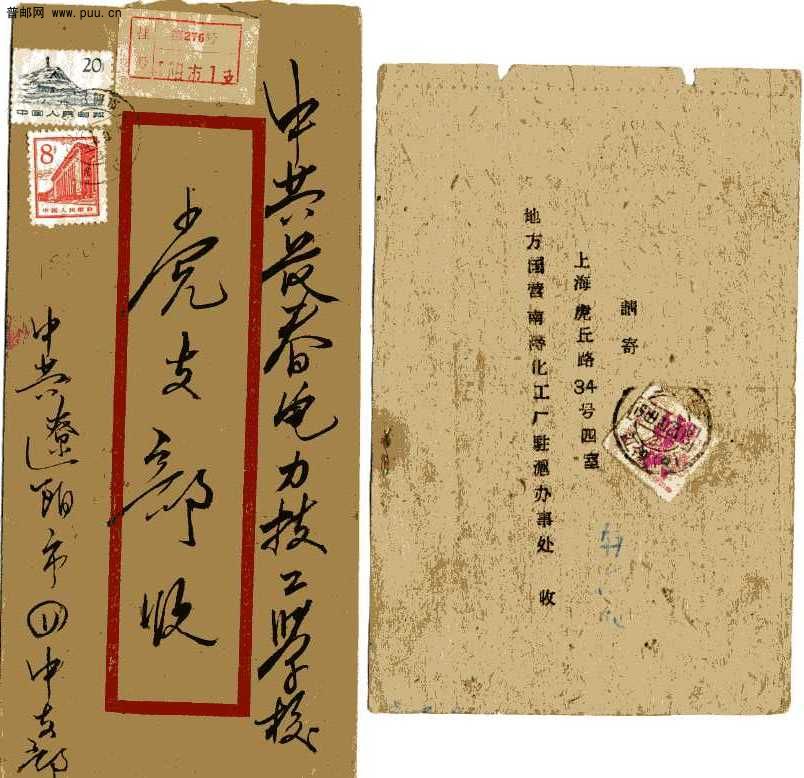 普邮网 www.puu.cn
276号
阳市1支
20
中国人民邮政
8
中国人民邮政
中共長春电力技工学校
党支部收
中共遼阳市
中支部
請寄
上海虎丘路34号四室
地方国营南浔化工厂駐滬办事处 收